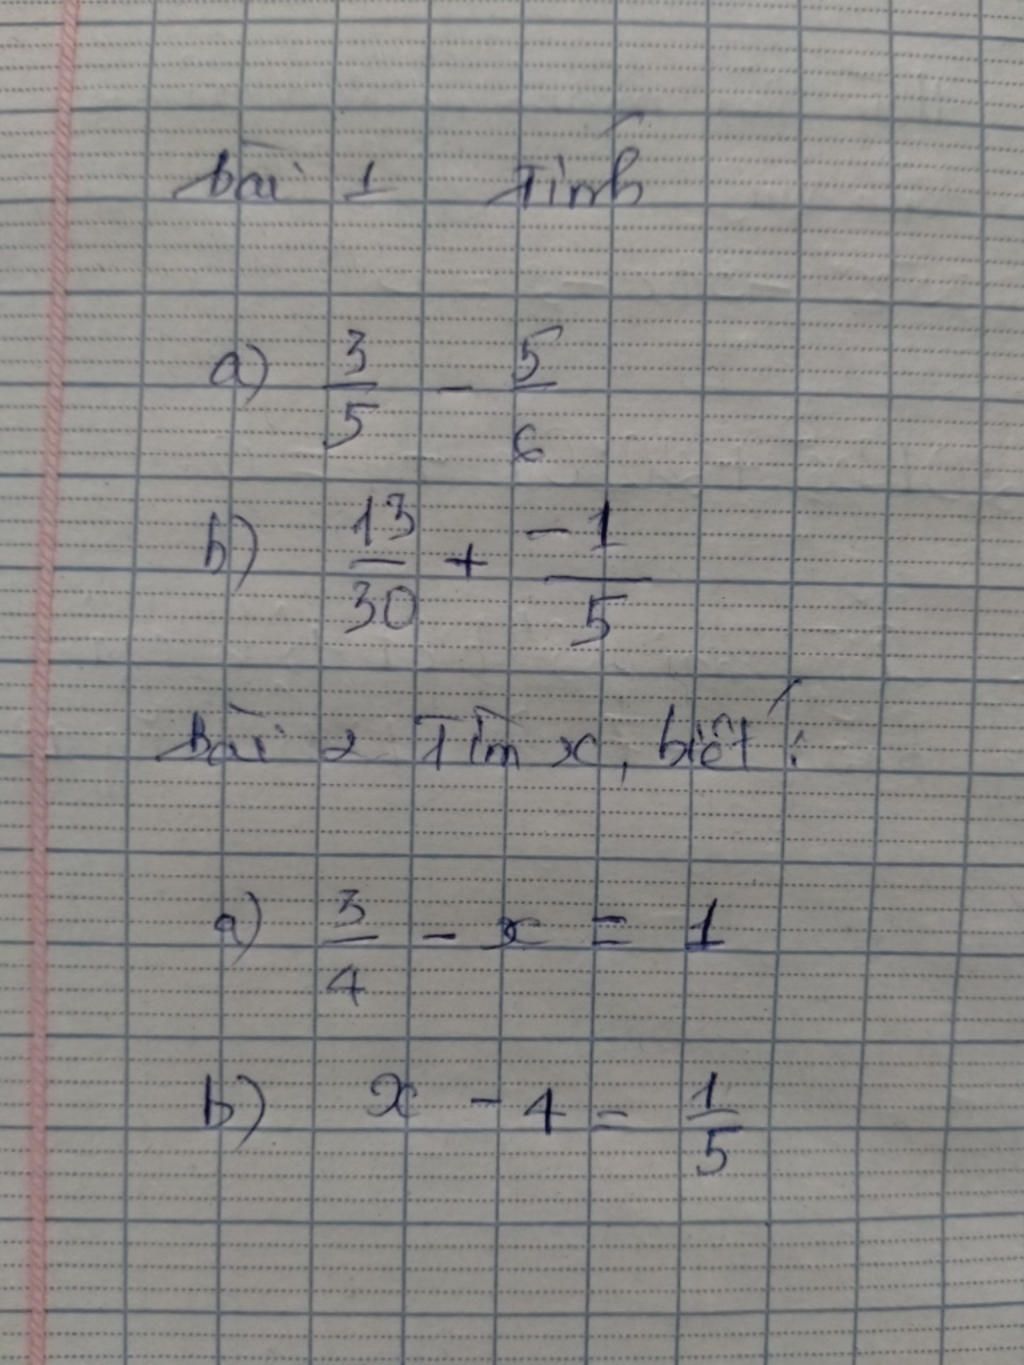 bài 1 Tính
a) 3/5 - 5/6
b) 13/30 + -1/5
bài 2 Tìm x, biết:
a) 3/4 - x = 1
b) x - 4 = 1/5